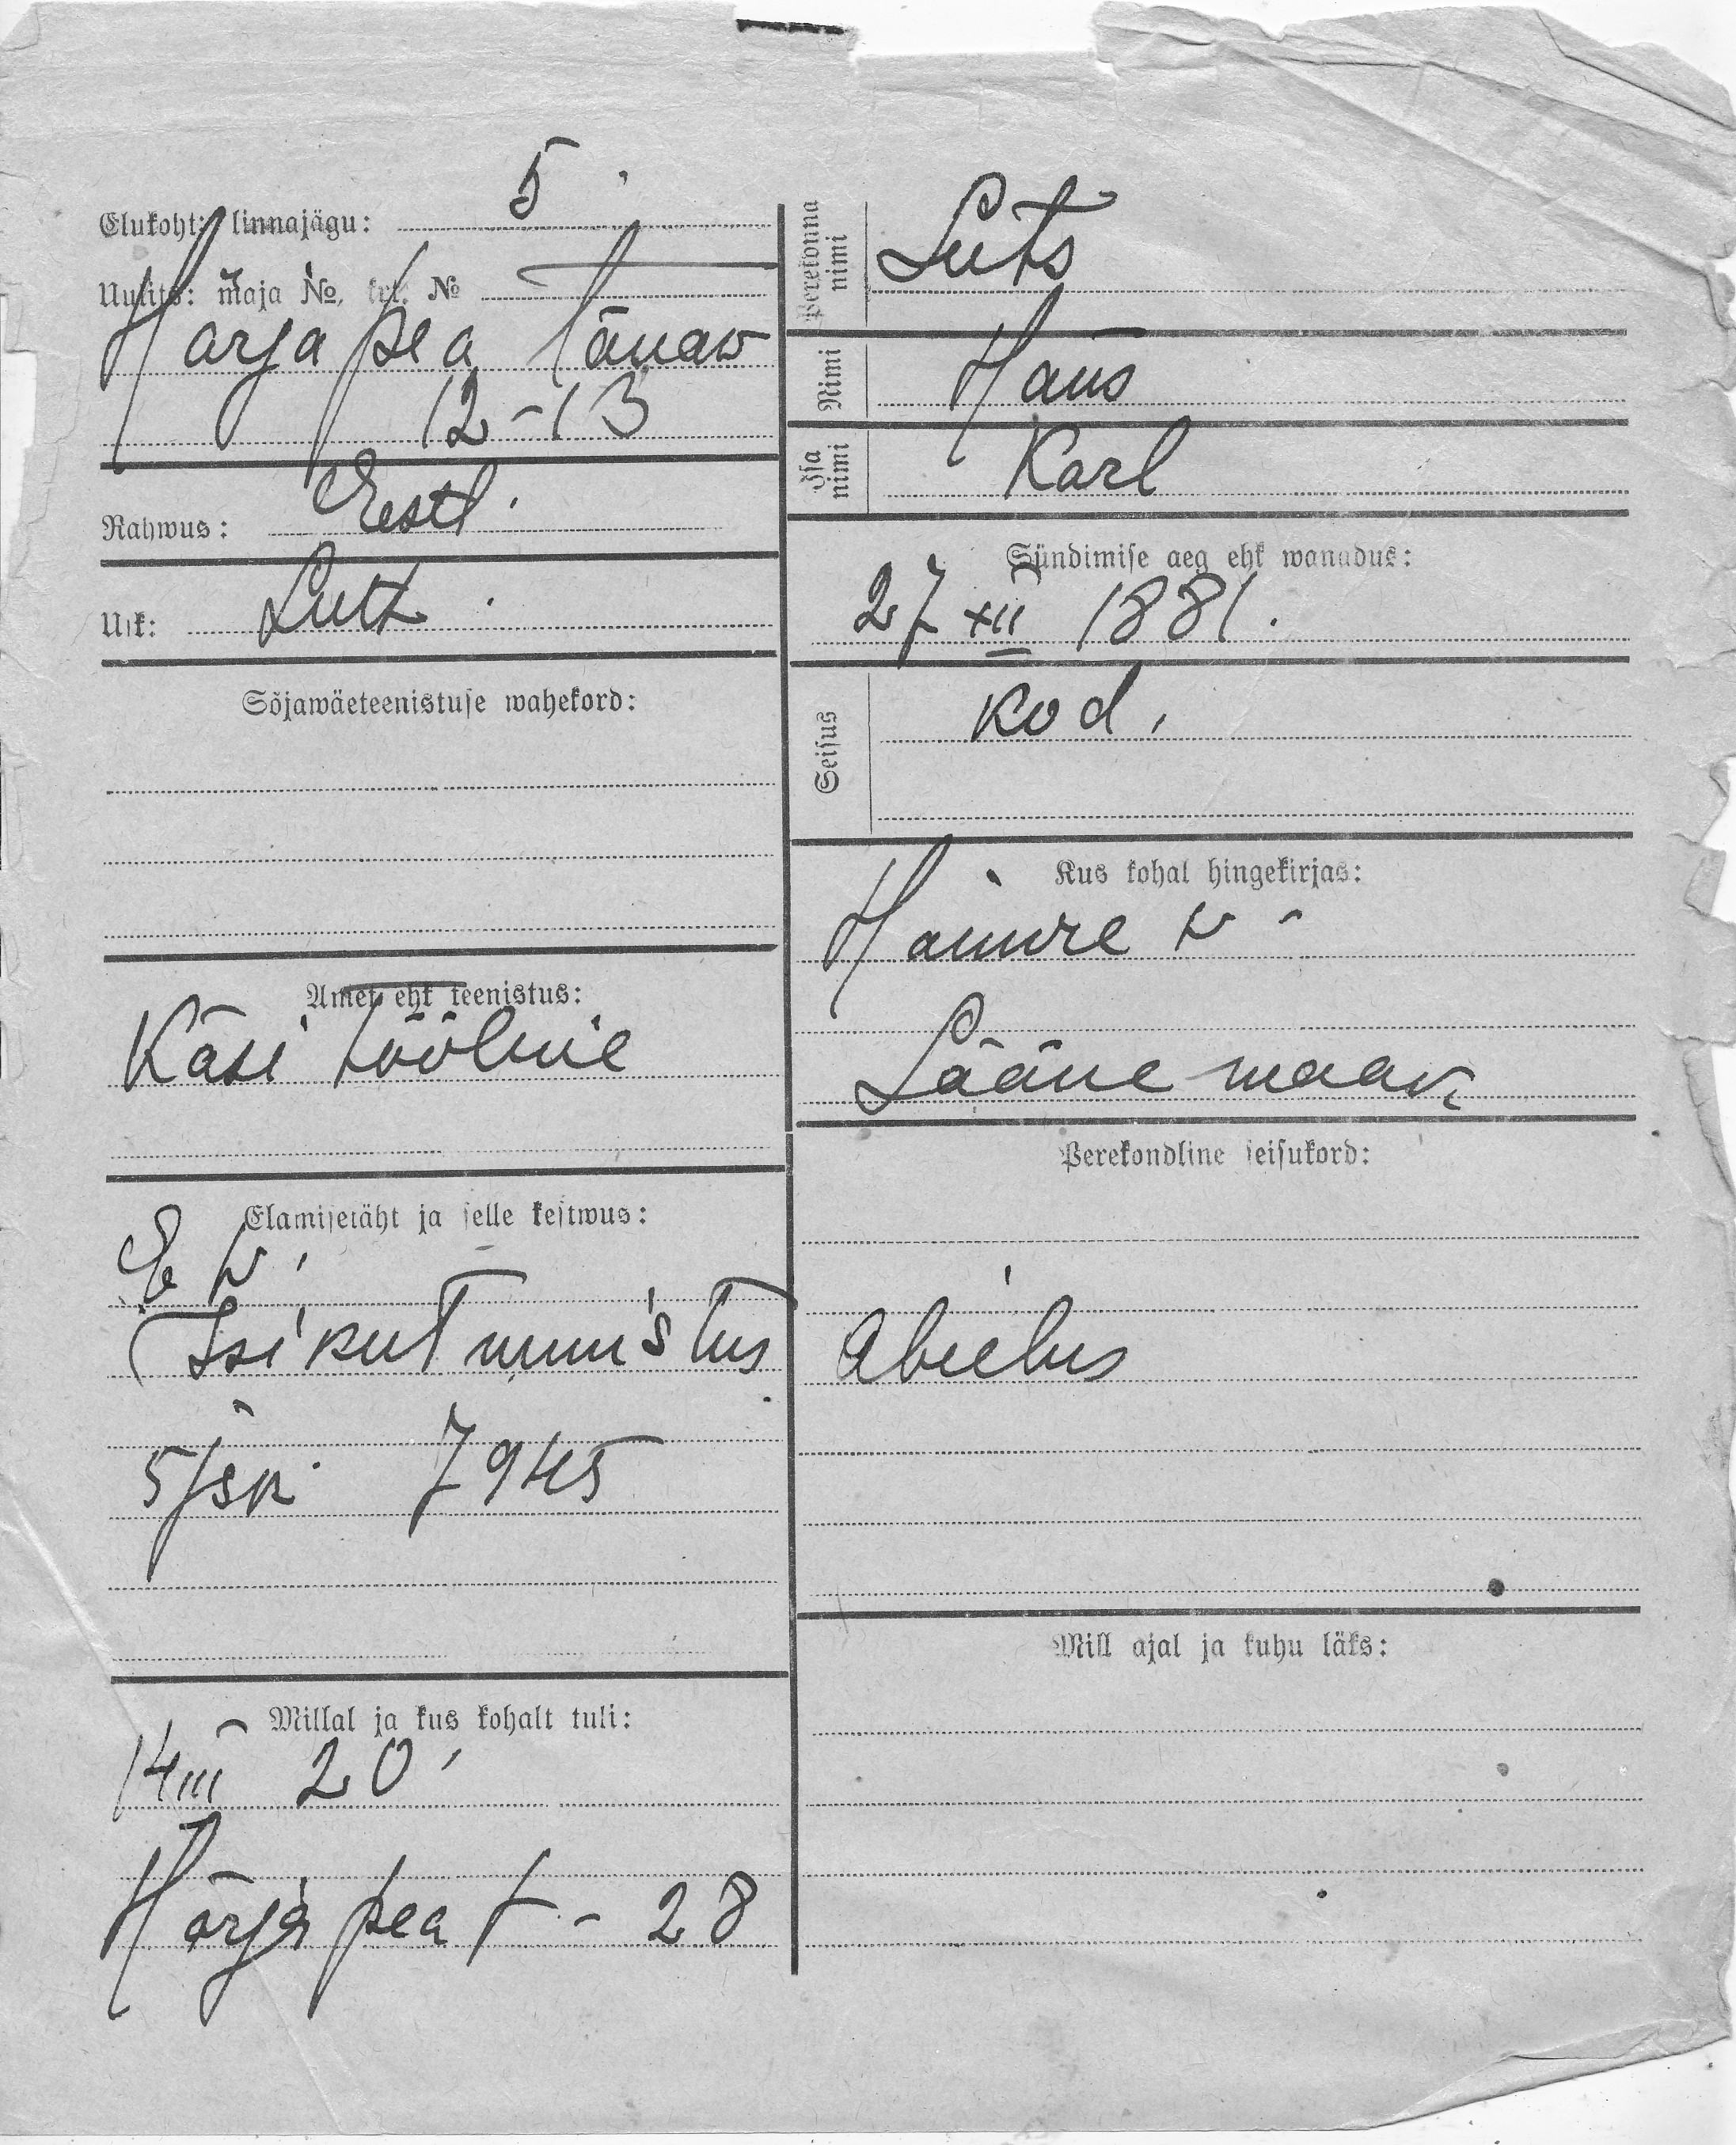 Elukoht: linnajagu: 5
Uulits: maja №, krt. №
Harja pea tänaw
12-13
Rahwus: Eestl.
Usk: Lutk.
Sõjawäeteenistuse wahekord:
Amet ehk teenistus:
Käsi tööline
Elamisetäht ja selle kestwus:
E W.
Isikut tunnistus
5/jsk. 7945
Millal ja kus kohalt tuli:
14 III 20
Härja pea t - 28
Perekonna nimi Luts
Nimi Hans
Isa nimi Karl
Sündimise aeg ehk wanadus:
27 XII 1881.
Seisus kod.
Kus kohal hingekirjas:
w -
Lääne maak.
Perekondline seisukord:
Abielus
Mill ajal ja kuhu läks: